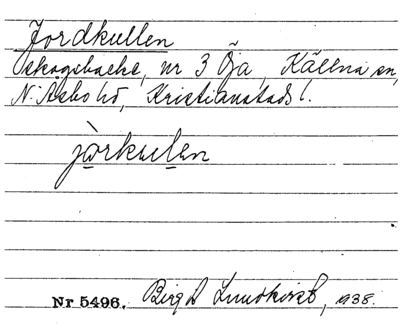 Jordkullen
skogsbacke, nr 3 Öja, Källna sn,
N. Åsbo hd, Kristianstads l.
jòrkulen
Nr 5496. Birgit Lundkvist, 1938.